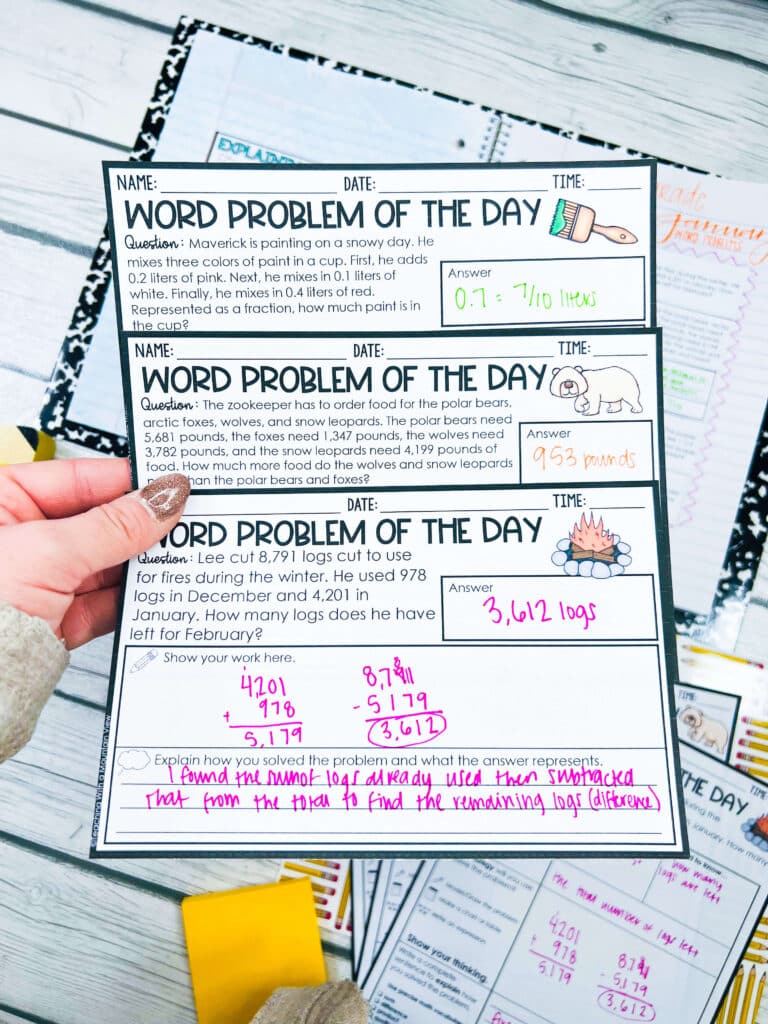 EXPLAIN
NAME: DATE: TIME:
WORD PROBLEM OF THE DAY
Question: Maverick is painting on a snowy day. He
mixes three colors of paint in a cup. First, he adds
0.2 liters of pink. Next, he mixes in 0.1 liters of
white. Finally, he mixes in 0.4 liters of red.
Represented as a fraction, how much paint is in
the cup?
Answer
0.7 = 7/10 liters
January
WORD PROBLEMS
NAME: DATE: TIME:
WORD PROBLEM OF THE DAY
Question: The zookeeper has to order food for the polar bears,
arctic foxes, wolves, and snow leopards. The polar bears need
5,681 pounds, the foxes need 1,347 pounds, the wolves need
3,782 pounds, and the snow leopards need 4,199 pounds of
food. How much more food do the wolves and snow leopards
than the polar bears and foxes?
Answer
953 pounds
DATE: TIME:
WORD PROBLEM OF THE DAY
Question: Lee cut 8,791 logs cut to use
for fires during the winter. He used 978
logs in December and 4,201 in
January. How many logs does he have
left for February?
Answer
3,612 logs
Show your work here.
4,201
+ 978
5,179
8,791
- 5179
3,612
Explain how you solved the problem and what the answer represents.
I found the sum of logs already used then subtracted
that from the total to find the remaining logs (difference)
©Teaching With a Mountain View
TIME:
THE DAY
January. How many
how many
logs are left
the total number of logs left
Show your thinking.
Write a complete
sentence to explain how
you solved the problem.
4,201
+ 978
5179
8,791
- 5179
3,612